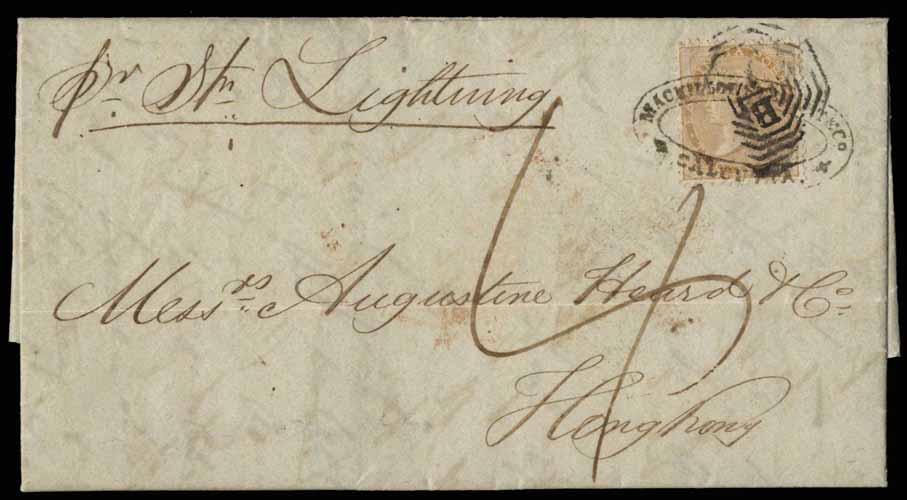 pr Stm Lightning
MACKI & Co
CALCUTTA.
B
4
Messrs. Augustine Heard & Co
Hongkong